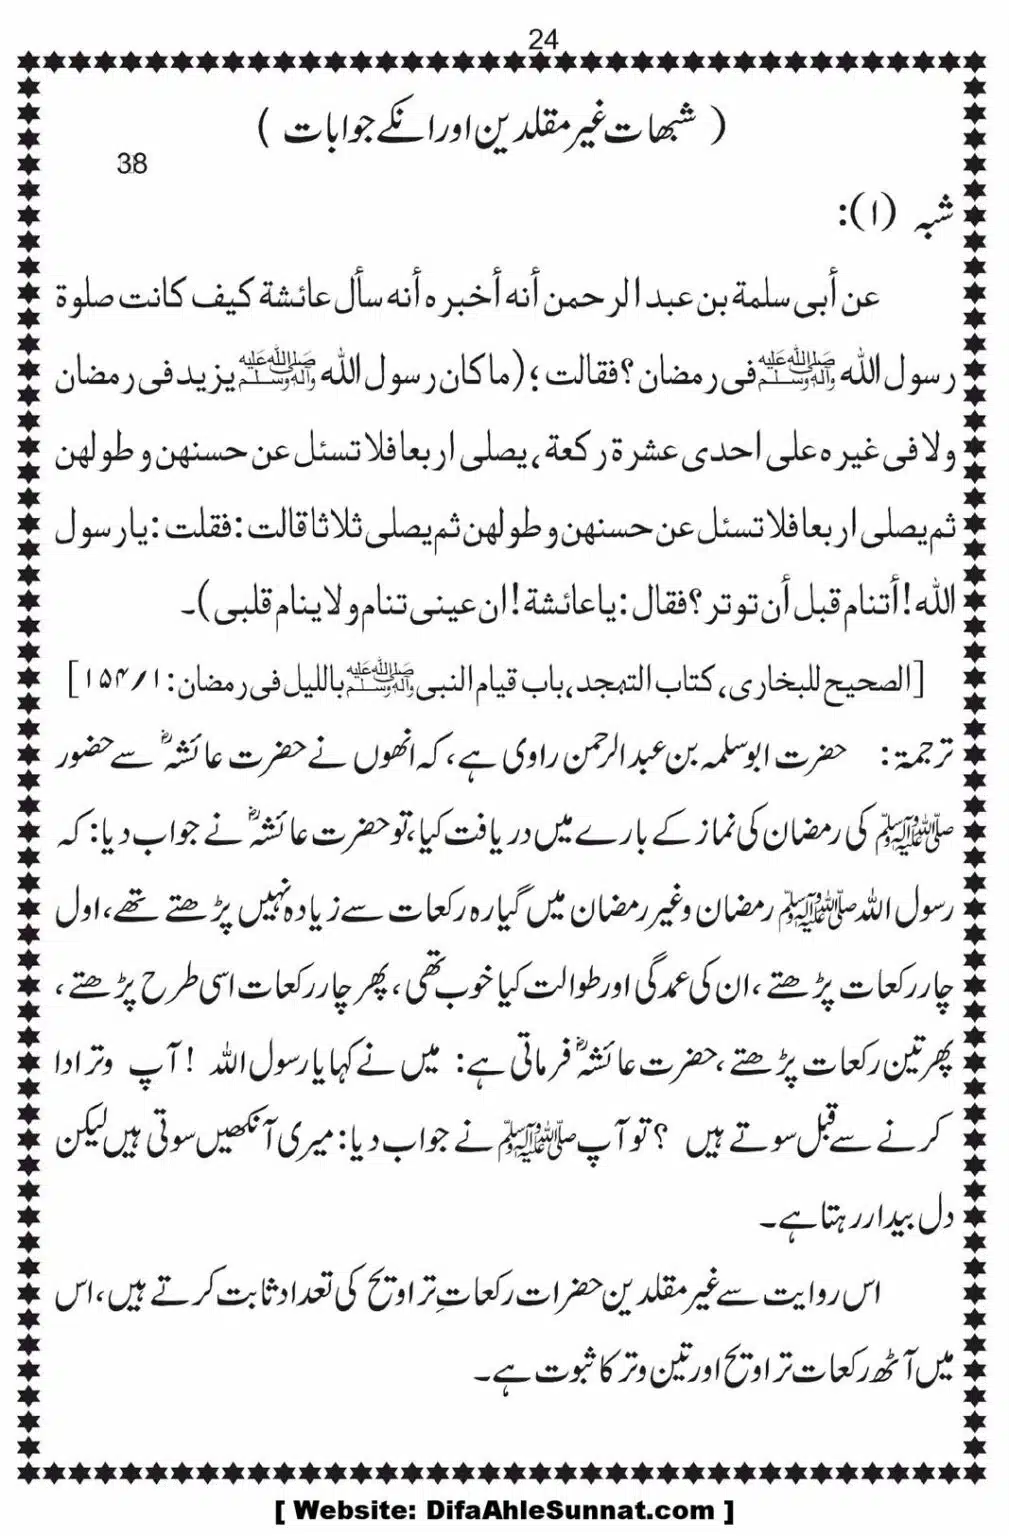 24
( شبهات غیر مقلدین اور انکے جوابات )
38
شبہ (۱):
عن أبی سلمة بن عبد الرحمن أنه أخبره أنه سأل عائشة کیف کانت صلوة
رسول اللہ ﷺ فی رمضان ؟ فقالت ؛ (ما کان رسول اللہ ﷺ یزید فی رمضان
ولا فی غیره علی احدی عشرة رکعة، یصلی اربعا فلا تسئل عن حسنهن و طولهن
ثم یصلی اربعا فلا تسئل عن حسنهن و طولهن ثم یصلی ثلاثا قالت : فقلت : یا رسول
اللہ ! أتنام قبل أن توتر ؟ فقال : یا عائشة ! ان عینی تنام و لا ینام قلبی)۔
[الصحیح للبخاری، کتاب التہجد، باب قیام النبی ﷺ باللیل فی رمضان : ۱/۱۵۴]
ترجمة : حضرت ابوسلمہ بن عبد الرحمن راوی ہے، کہ انھوں نے حضرت عائشہؓ سے حضور
ﷺ کی رمضان کی نماز کے بارے میں دریافت کیا، تو حضرت عائشہؓ نے جواب دیا : کہ
رسول اللہ ﷺ رمضان وغیر رمضان میں گیارہ رکعات سے زیادہ نہیں پڑھتے تھے، اول
چار رکعات پڑھتے، ان کی عمدگی اور طوالت کیا خوب تھی، پھر چار رکعات اسی طرح پڑھتے،
پھر تین رکعات پڑھتے، حضرت عائشہؓ فرماتی ہے : میں نے کہا یا رسول اللہ ! آپ وتر ادا
کرنے سے قبل سوتے ہیں ؟ تو آپ ﷺ نے جواب دیا : میری آنکھیں سوتی ہیں لیکن
دل بیدار رہتا ہے۔
اس روایت سے غیر مقلدین حضرات رکعاتِ تراویح کی تعداد ثابت کرتے ہیں، اس
میں آٹھ رکعات تراویح اور تین وتر کا ثبوت ہے۔
[ Website: DifaAhleSunnat.com ]